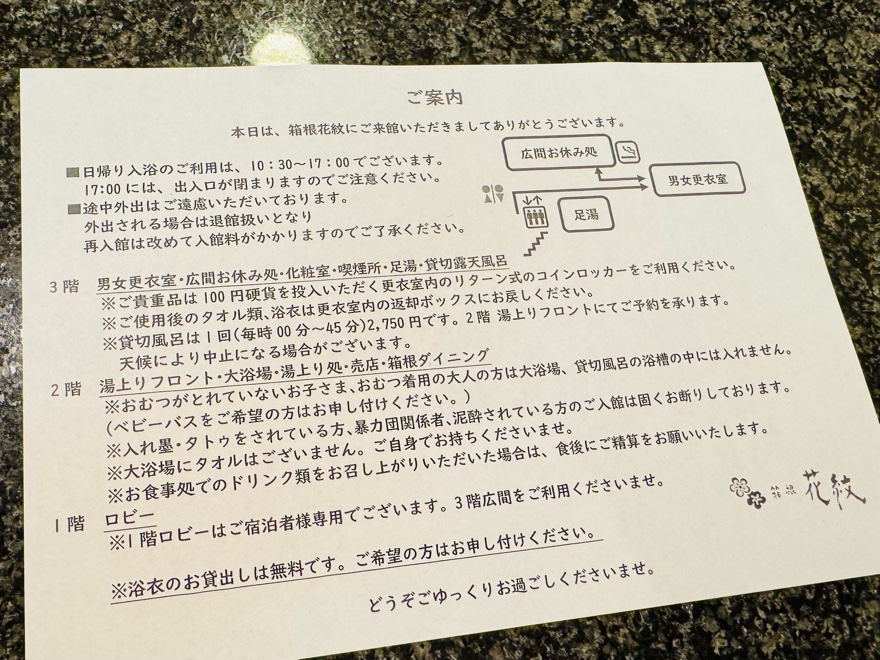 ご案内
本日は、箱根花紋にご来館いただきましてありがとうございます。
■日帰り入浴のご利用は、10：30〜17：00でございます。
17:00には、出入口が閉まりますのでご注意ください。
■途中外出はご遠慮いただいております。
外出される場合は退館扱いとなり
再入館は改めて入館料がかかりますのでご了承ください。
広間お休み処
男女更衣室
足湯
3階 男女更衣室・広間お休み処・化粧室・喫煙所・足湯・貸切露天風呂
※ご貴重品は100円硬貨を投入いただく更衣室内のリターン式のコインロッカーをご利用ください。
※ご使用後のタオル類、浴衣は更衣室内の返却ボックスにお戻しください。
※貸切風呂は1回(毎時00分〜45分)2,750円です。2階 湯上りフロントにてご予約を承ります。
天候により中止になる場合がございます。
2階 湯上りフロント・大浴場・湯上り処・売店・箱根ダイニング
※おむつがとれていないお子さま、おむつ着用の大人の方は大浴場、貸切風呂の浴槽の中には入れません。
(ベビーバスをご希望の方はお申し付けください。)
※入れ墨・タトゥをされている方、暴力団関係者、泥酔されている方のご入館は固くお断りしております。
※大浴場にタオルはございません。ご自身でお持ちくださいませ。
※お食事処でのドリンク類をお召し上がりいただいた場合は、食後にご精算をお願いいたします。
1階 ロビー
※1階ロビーはご宿泊者様専用でございます。3階広間をご利用くださいませ。
※浴衣のお貸出しは無料です。ご希望の方はお申し付けください。
どうぞごゆっくりお過ごしくださいませ。
箱根 花紋